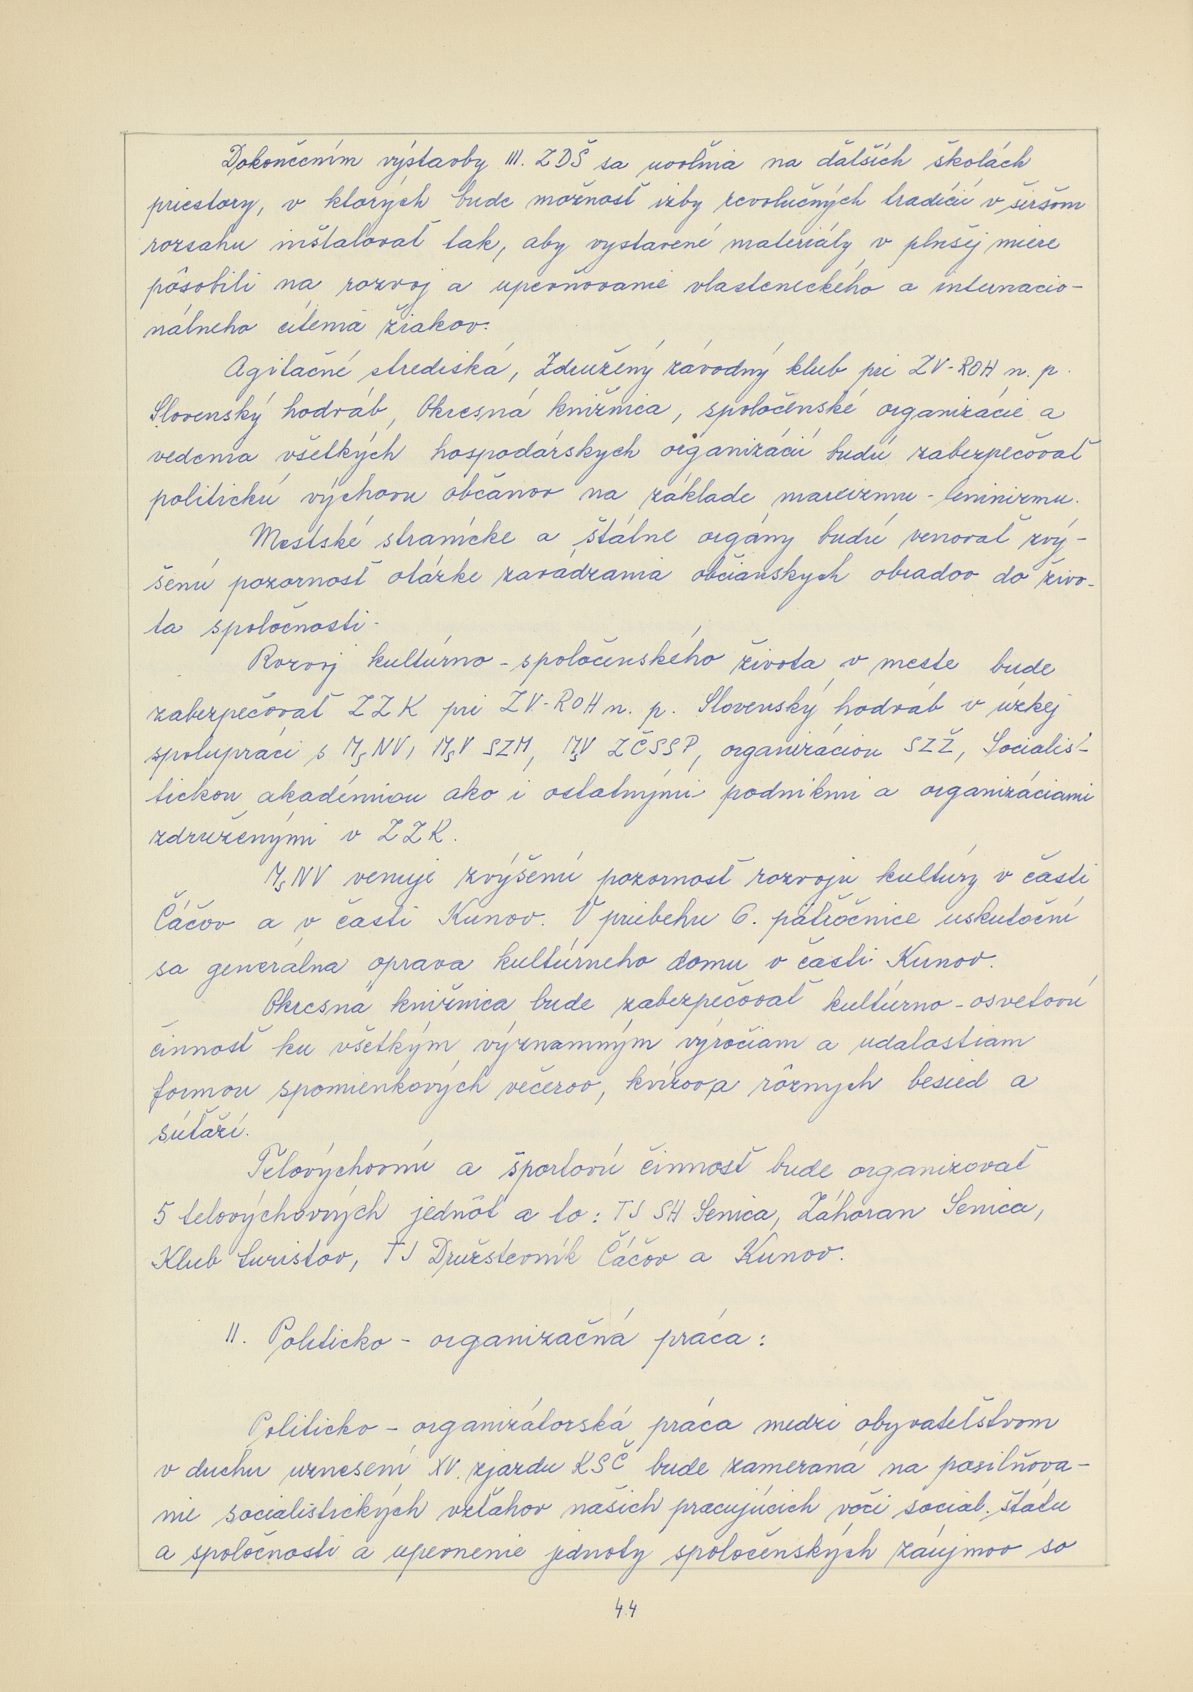 Dokončením výstavby III. ZDŠ sa uvoľnia na ďalších školách
priestory, v ktorých bude možnosť izby revolučných tradícií v širšom
rozsahu inštalovať tak, aby vystavené materiály v plnšej miere
pôsobili na rozvoj a upevňovanie vlasteneckého a internacio-
nálneho cítenia žiakov.
Agitačné strediská, Združený závodný klub pri ZV-ROH n. p.
Slovenský hodváb, Okresná knižnica, spoločenské organizácie a
vedenia všetkých hospodárskych organizácií budú zabezpečovať
politickú výchovu občanov na základe marxizmu - leninizmu.
Mestské stranícke a štátne orgány budú venovať zvý-
šenú pozornosť otázke zavádzania občianskych obradov do živo-
ta spoločnosti.
Rozvoj kultúrno - spoločenského života v meste bude
zabezpečovať ZZK pri ZV-ROH n. p. Slovenský hodváb v úzkej
spolupráci s MsNV, MsV SZM, MsV ZČSSP, organizáciou SZŽ, Socialis-
tickou akadémiou ako i ostatnými podnikmi a organizáciami
združenými v ZZK.
MsNV venuje zvýšenú pozornosť rozvoju kultúry v časti
Čáčov a v časti Kunov. V priebehu 6. päťročnice uskutoční
sa generálna oprava kultúrneho domu v časti Kunov.
Okresná knižnica bude zabezpečovať kultúrno - osvetovú
činnosť ku všetkým významným výročiam a udalostiam
formou spomienkových večerov, kvízov, a rôznych besied a
súťaží.
Telovýchovnú a športovú činnosť bude organizovať
5 telovýchovných jednôt a to: TJ SH Senica, Záhoran Senica,
Klub turistov, TJ Družstevník Čáčov a Kunov.
II. Politicko - organizačná práca:
Politicko - organizátorská práca medzi obyvateľstvom
v duchu uznesení XV. zjazdu KSČ bude zameraná na posilňova-
nie socialistických vzťahov našich pracujúcich voči social. štátu
a spoločnosti a upevnenie jednoty spoločenských záujmov so
44